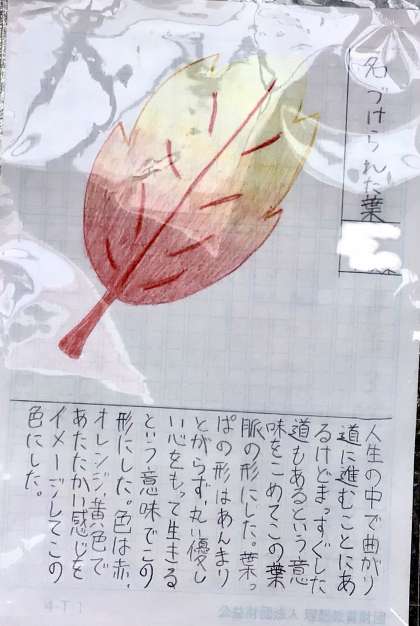 名づけられた葉
人生の中で曲がり
道に進むことにあ
るけどまっすぐした
道もあるという意
味をこめてこの葉
脈の形にした。葉っ
ぱの形はあんまり
とがらず、丸い優し
い心をもって生きる
という意味でこの
形にした。色は赤、
オレンジ、黄色で
あたたかい感じを
イメージしてこの
色にした。